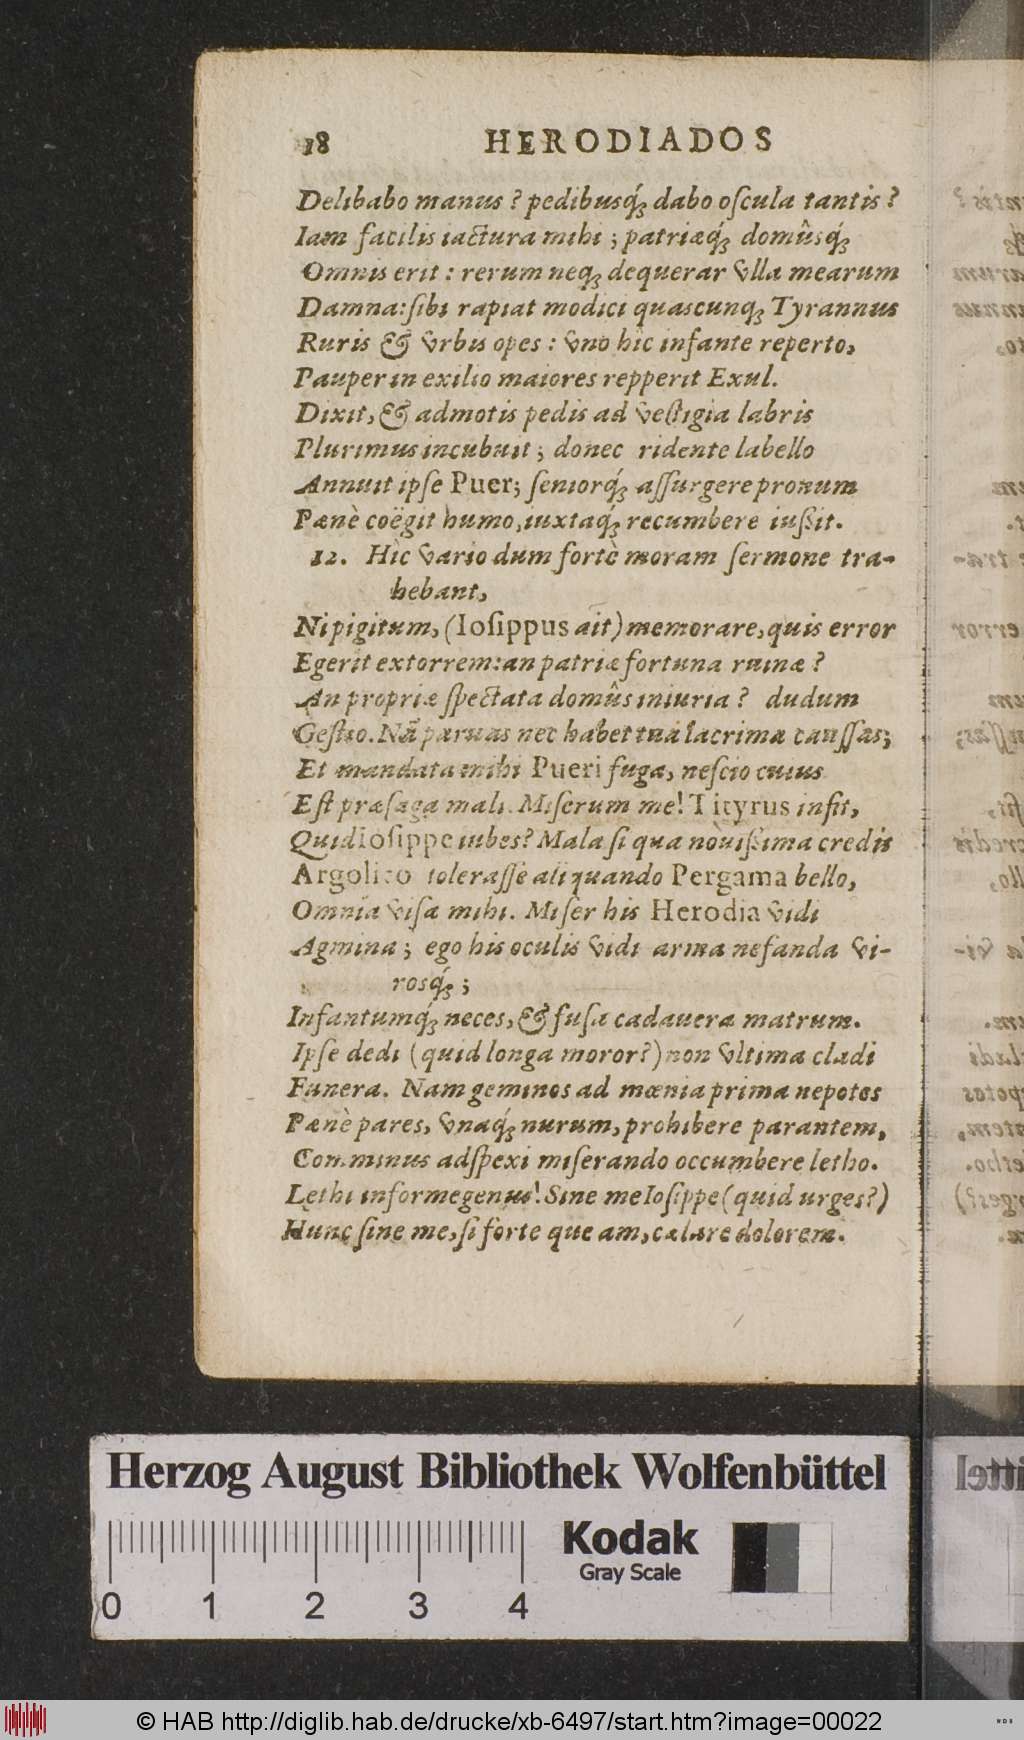 18 HERODIADOS
Delibabo manus? pedibusq́; dabo oſcula tantis?
Iam facilis iactura mihi; patriæq́; domûsq́;
Omnis erit: rerum neq; dequerar vlla mearum
Damna: ſibi rapiat modici quascunq; Tyrannus
Ruris & vrbis opes: vno hic infante reperto,
Pauper in exilio maiores repperit Exul.
Dixit, & admotis pedis ad veſtigia labris
Plurimus incubuit; donec ridente labello
Annuit ipſe Puer; ſeniorq́; aſſurgere pronum
Pænè coëgit humo, iuxtaq́; recumbere iuſsit.
12. Hìc vario dum fortè moram ſermone tra-
hebant,
Ni pigitum, (Ioſippus ait) memorare, quis error
Egerit extorrem: an patriæ fortuna ruinæ?
An propriæ ſpectata domûs iniuria? dudum
Geſtio. Nã paruas nec habet tua lacrima cauſſas;
Et mandata mihi Pueri fuga, neſcio cuius
Eſt præſaga mali. Miſerum me! Tityrus infit,
Quid Ioſippe iubes? Mala ſi qua nouiſsima credis
Argolico toleraſſe aliquando Pergama bello,
Omnia viſa mihi. Miſer his Herodia vidi
Agmina; ego his oculis vidi arma nefanda vi-
rosq́;;
Infantumq́; neces, & fuſa cadauera matrum.
Ipſe dedi (quid longa moror?) non vltima cladi
Funera. Nam geminos ad mœnia prima nepotes
Pænè pares, vnaq́; nurum, prohibere parantem,
Comminus adſpexi miſerando occumbere letho.
Lethi informe genus! Sine me Ioſippe (quid urges?)
Hunc ſine me, ſi forte queam, cælare dolorem.
Herzog August Bibliothek Wolfenbüttel
Kodak
Gray Scale
0 1 2 3 4
© HAB http://diglib.hab.de/drucke/xb-6497/start.htm?image=00022